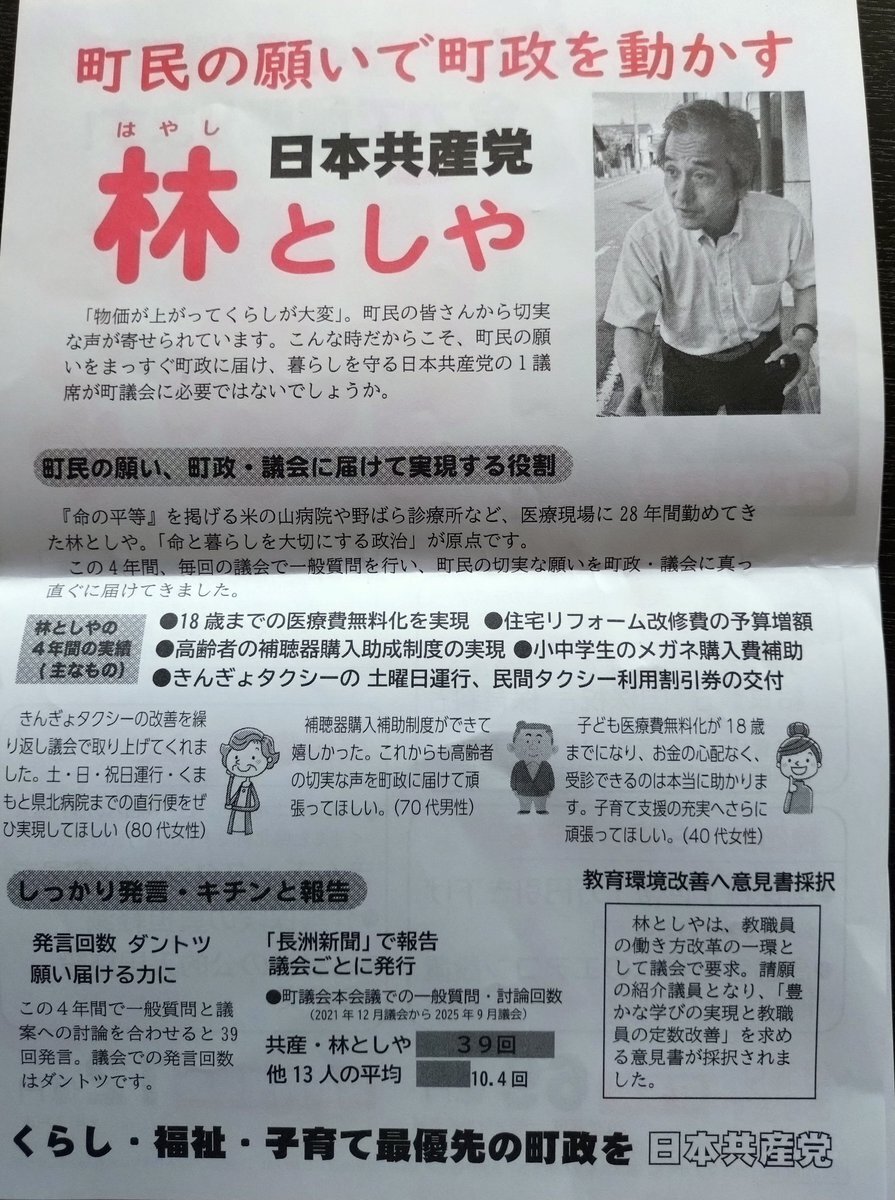 町民の願いで町政を動かす
はやし
日本共産党
林としや
「物価が上がってくらしが大変」。町民の皆さんから切実
な声が寄せられています。こんな時だからこそ、町民の願
いをまっすぐ町政に届け、暮らしを守る日本共産党の１議
席が町議会に必要ではないでしょうか。
町民の願い、町政・議会に届けて実現する役割
『命の平等』を掲げる米の山病院や野ばら診療所など、医療現場に 28 年間勤めてき
た林としや。「命と暮らしを大切にする政治」が原点です。
この４年間、毎回の議会で一般質問を行い、町民の切実な願いを町政・議会に真っ
直ぐに届けてきました。
林としやの
４年間の実績
(主なもの)
●18 歳までの医療費無料化を実現 ●住宅リフォーム改修費の予算増額
●高齢者の補聴器購入助成制度の実現 ●小中学生のメガネ購入費補助
●きんぎょタクシーの 土曜日運行、民間タクシー利用割引券の交付
きんぎょタクシーの改善を繰
り返し議会で取り上げてくれま
した。土・日・祝日運行・くま
もと県北病院までの直行便をぜ
ひ実現してほしい（80 代女性）
補聴器購入補助制度ができて
嬉しかった。これからも高齢者
の切実な声を町政に届けて頑
張ってほしい。（70 代男性）
子ども医療費無料化が 18 歳
までになり、お金の心配なく、
受診できるのは本当に助かりま
す。子育て支援の充実へさらに
頑張ってほしい。（40 代女性）
しっかり発言・キチンと報告
発言回数 ダントツ
願い届ける力に
この４年間で一般質問と議
案への討論を合わせると 39
回発言。議会での発言回数
はダントツです。
「長洲新聞」で報告
議会ごとに発行
●町議会本会議での一般質問・討論回数
（2021 年 12 月議会から 2025 年 9 月議会）
共産・林としや ３９回
他 13 人の平均 10.4 回
教育環境改善へ意見書採択
林としやは、教職員
の働き方改革の一環と
して議会で要求。請願
の紹介議員となり、「豊
かな学びの実現と教職
員の定数改善」を求め
る意見書が採択されま
した。
くらし・福祉・子育て最優先の町政を 日本共産党